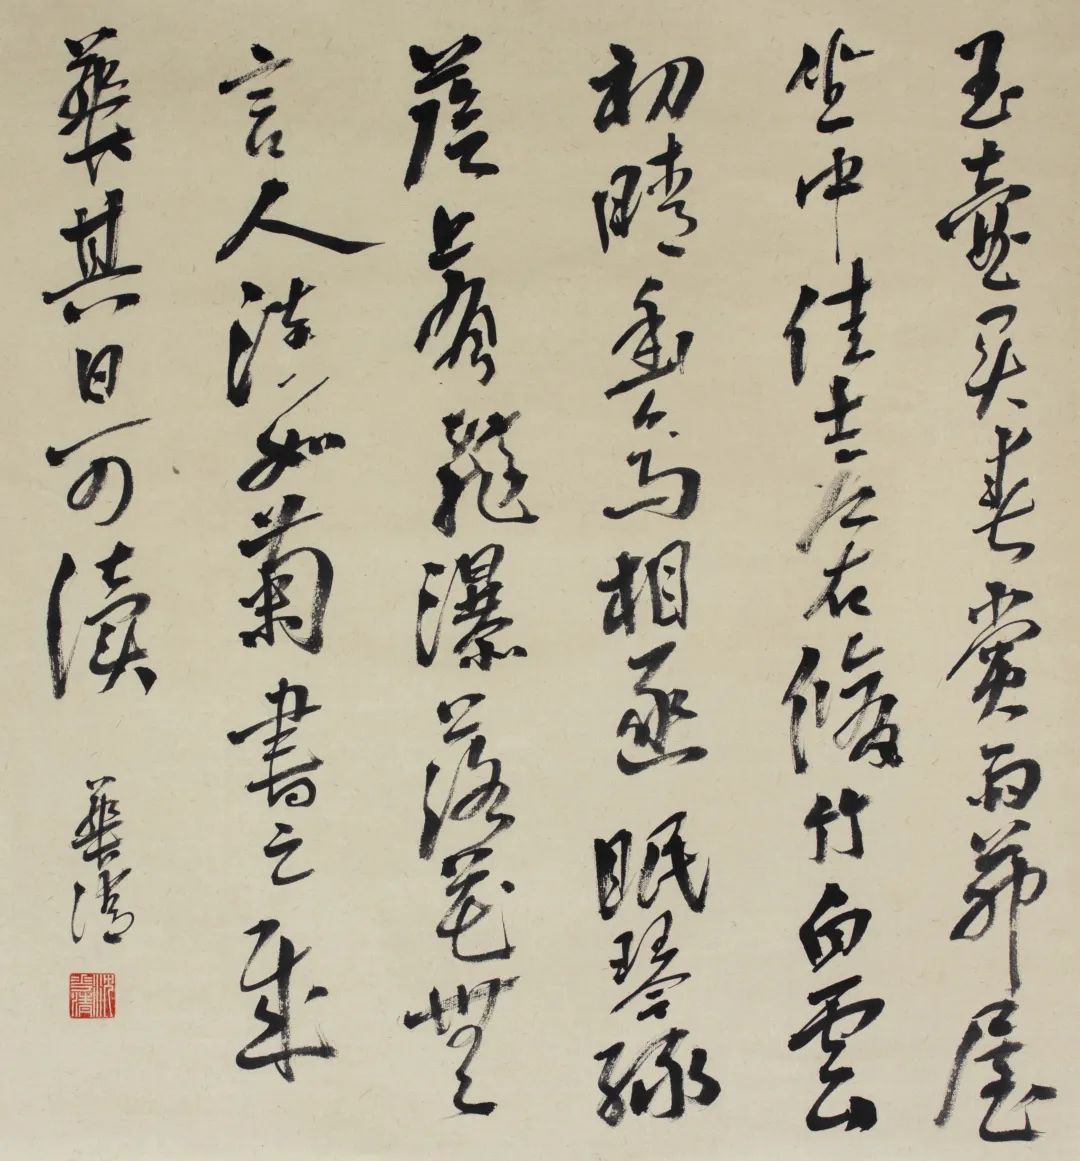 玉壺買春賞雨茆屋
坐中佳士左右脩竹白雲
初晴幽鳥相逐眠琴綠
蔭上有飛瀑落花無
言人淡如菊書之歲
華其曰可讀
華清